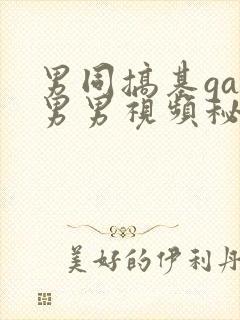 男同搞基ga
男男视频秘
美好的伊利丹